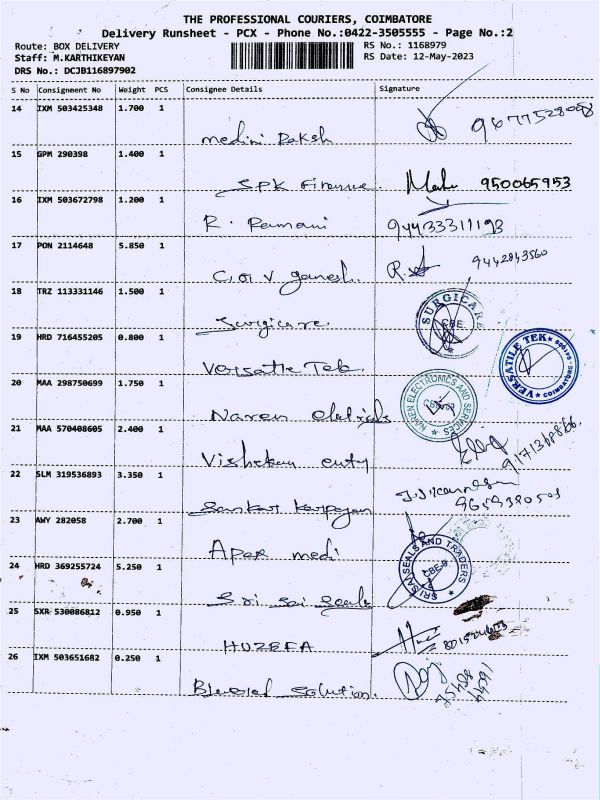 THE PROFESSIONAL COURIERS, COIMBATORE
Delivery Runsheet - PCX - Phone No.:0422-3505555 - Page No.:2
Route: BOX DELIVERY RS No.: 1168979
Staff: M.KARTHIKEYAN RS Date: 12-May-2023
DRS No.: DCJB116897902
S No Consignment No Weight PCS Consignee Details Signature
14 IXM 503425348 1.700 1
medini Daksh
15 GPM 290398 1.400 1
SPK Finance. 950065953
16 IXM 503672798 1.200 1
R. Ramani 94433311193
17 PON 2114648 5.850 1
G ganesh. 9442843560
18 TRZ 113331146 1.500 1
Surgicare SURGICARE CBE
19 HRD 716455205 0.800 1
Versatile Tek. VERSATILE TEK COIMBATORE
20 MAA 298750699 1.750 1
Naren NAREN ELECTRONICS AND SERVICES
21 MAA 570408605 2.400 1
22 SLM 319536893 3.350 1
Sankar
23 AWY 282058 2.700 1
Apex medi
24 HRD 369255724 5.250 1
Sri Sai Seals SRI SAI SEALS AND TRADERS CBE-9
25 SXR 530086812 0.950 1
HUZEFA
26 IXM 503651682 0.250 1
Solution.